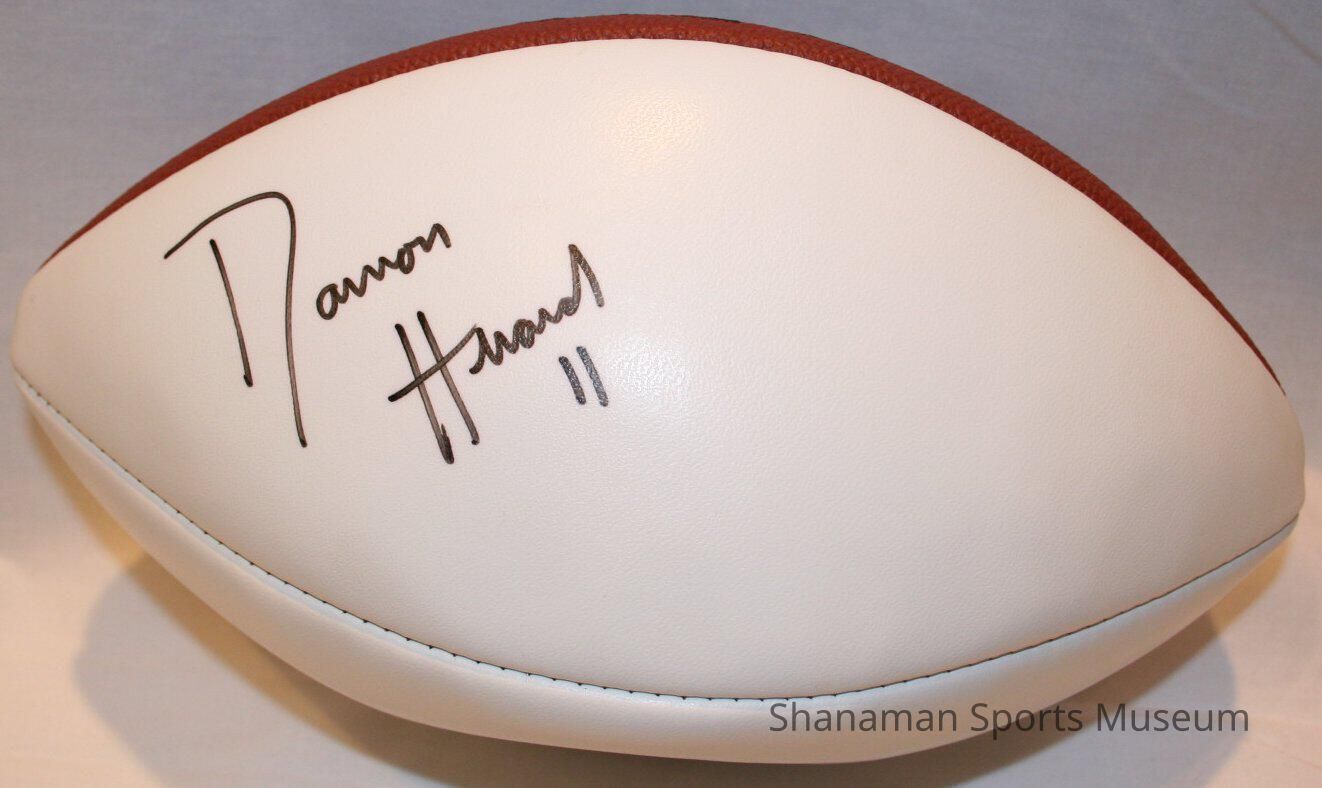 Damon
Huard
11
Shanaman Sports Museum